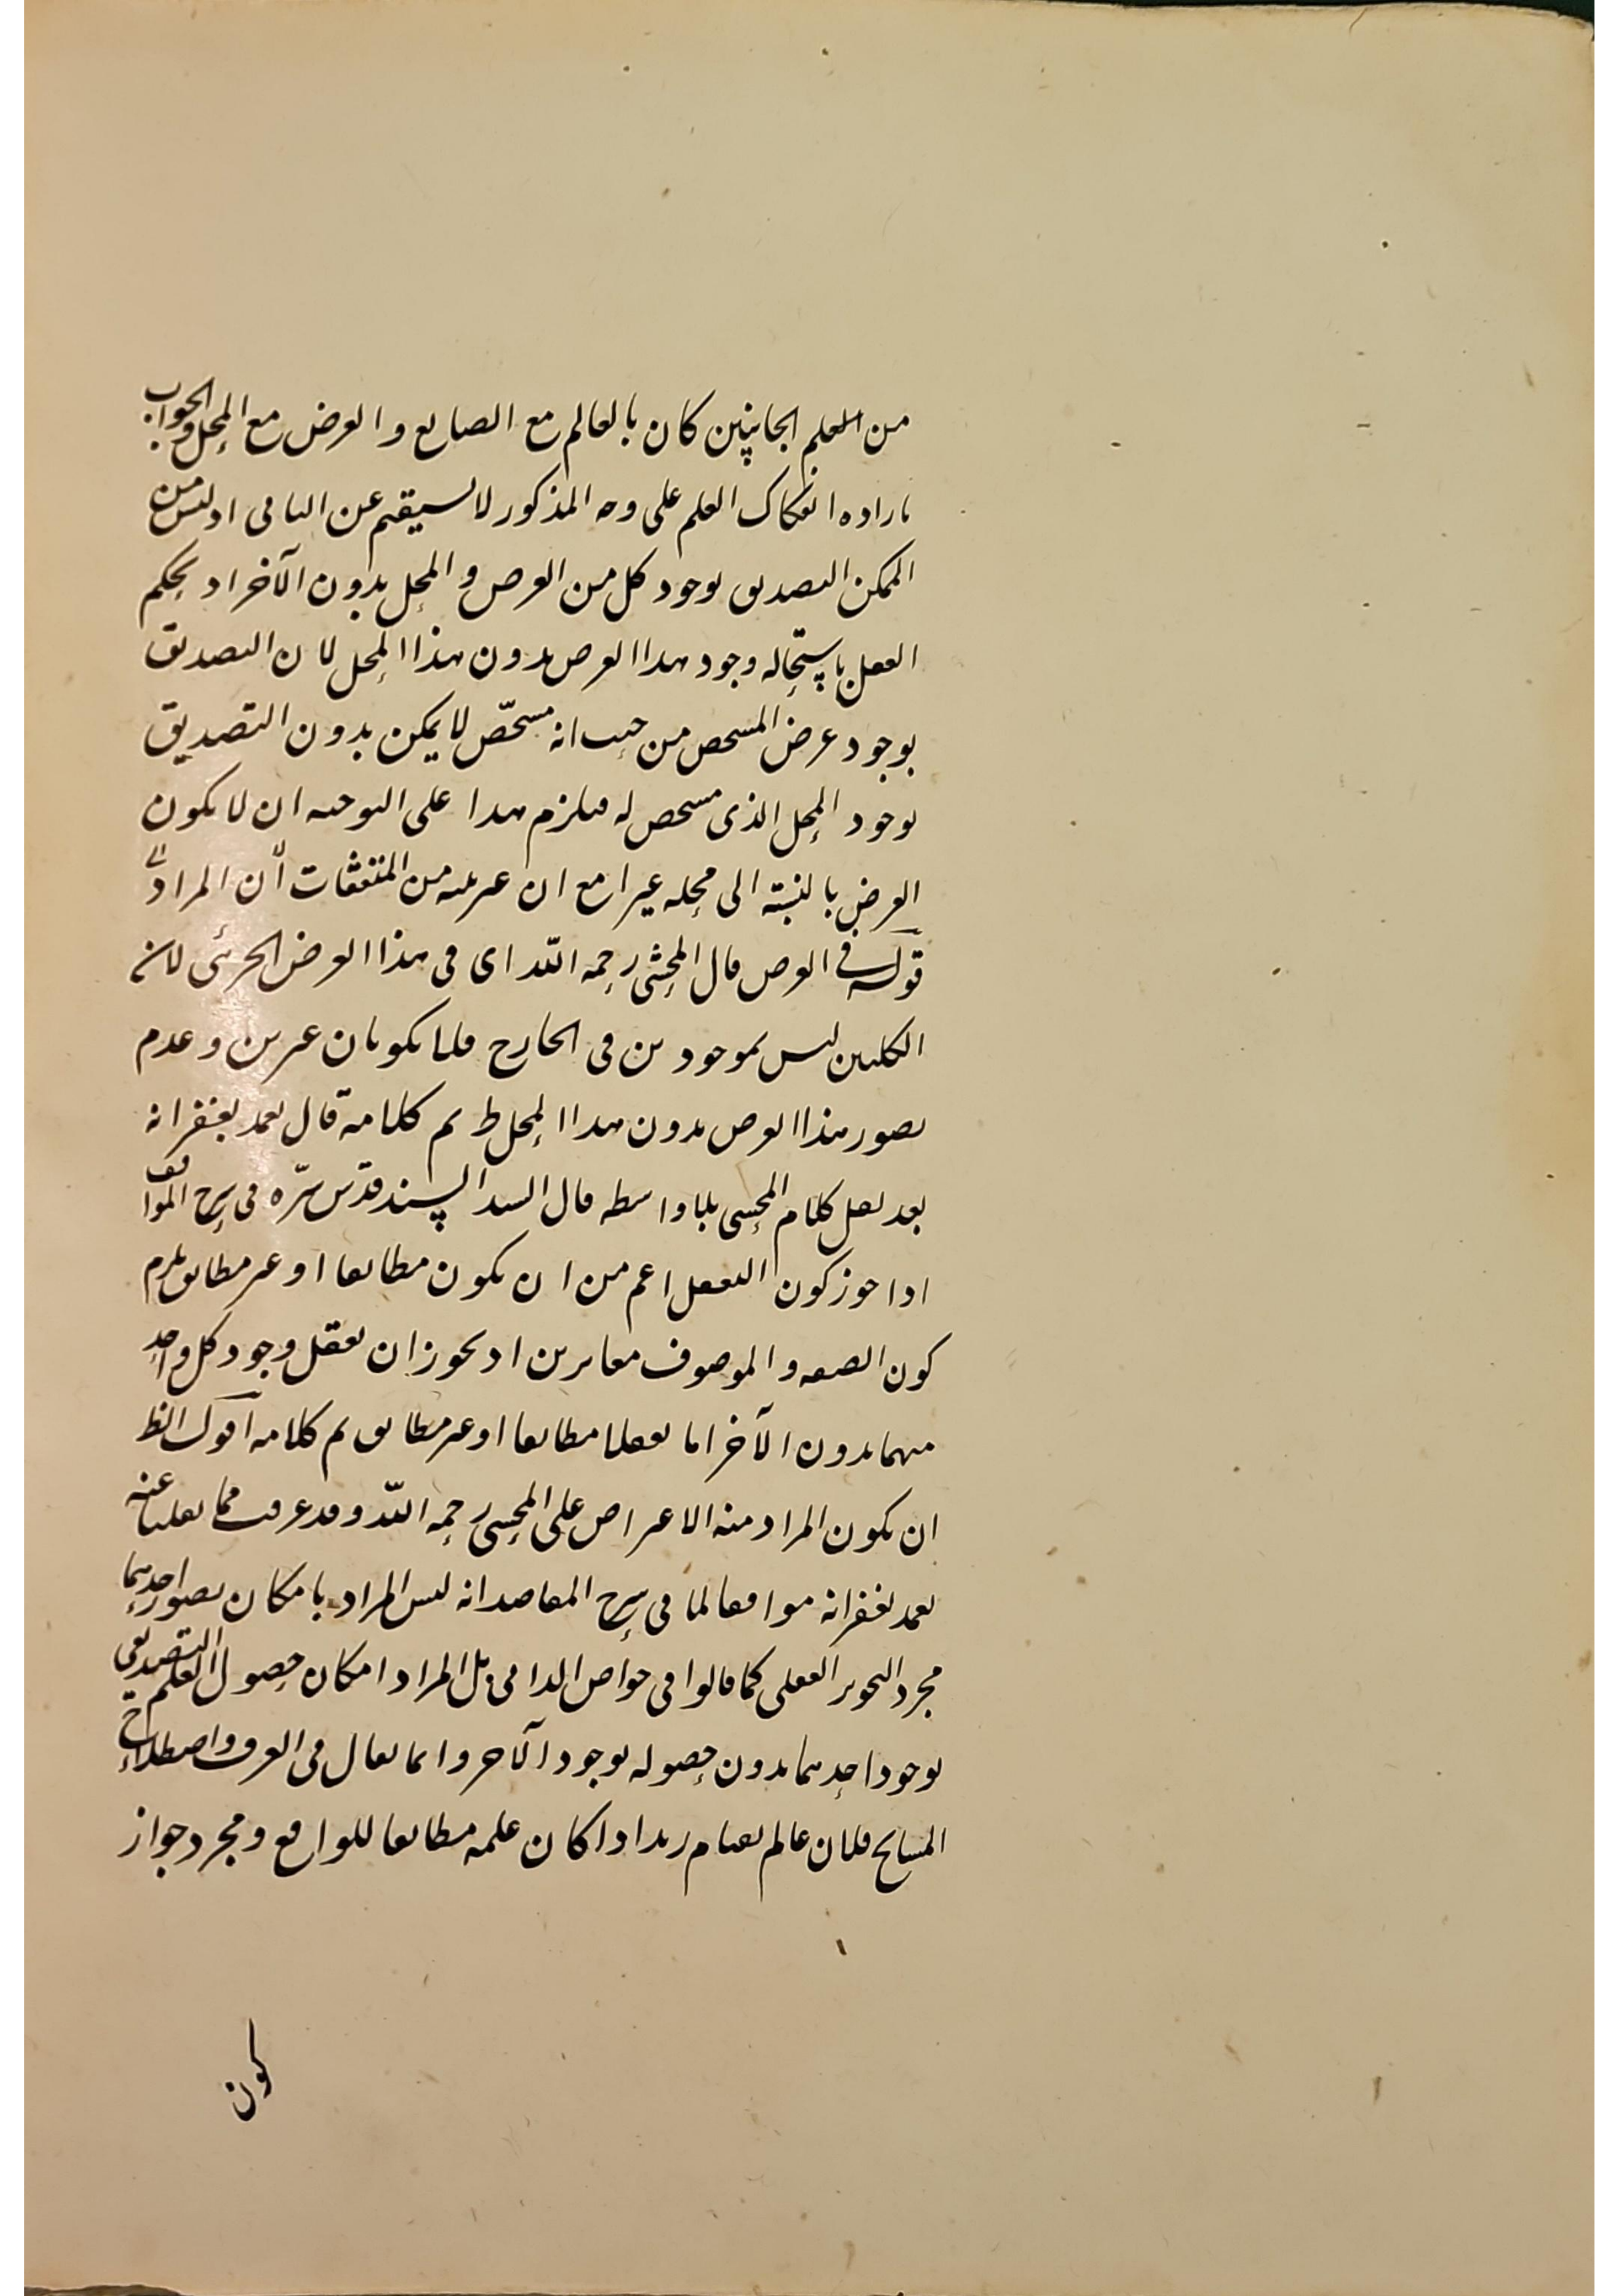 من العلم الجانبين كان بالعالم مع الصانع والعرض مع المحل والجواب
بارادة انفكاك العلم على وجه المذكور لا يستقيم عن الباقى اذ ليس من
الممكن التصديق بوجود كل من العرض والمحل بدون الآخر اذ يحكم
العقل باستحالة وجود هذا العرض بدون هذا المحل لان التصديق
بوجود عرض المشخص من حيث انه مشخّص لا يمكن بدون التصديق
بوجود المحل الذى مشخص له فيلزم هذا على التوجيه ان لا يكون
العرض بالنسبة الى محله غيرا مع ان غيريته من المتفقات لانّ المراد
قوله فى العرض قال المحشى رحمه اللّه اى فى هذا العرض الجزئى لان
الكليين ليس بموجودين فى الخارج فلا يكونان غيرين وعدم
تصور هذا العرض بدون هذا المحل ط تم كلامه قال تغمد بغفرانه
بعد نقل كلام المحشى بلا واسطة قال السيد السند قدّس سرّه فى شرح المواقف
اذا جوز كون التعقل اعم من ان يكون مطابقا او غير مطابق يلزم
كون الصفة والموصوف متغايرين اذ يجوز ان تعقل وجود كل واحد
منهما بدون الآخر اما تعقلا مطابقا او غير مطابق تم كلامه اقول الظ
ان يكون المراد منه الاعتراض على المحشى رحمه اللّه وقد عرفت مما نقلنا عنه
تغمد بغفرانه موافقا لما فى شرح المقاصد انه ليس المراد بامكان تصور احدهما
مجرد التجويز العقلى كما قالوا فى خواص الذاتى بل المراد امكان حصول العلم التصديقى
بوجود احدهما بدون حصوله بوجود الآخر وانما يقال فى العرف واصطلاح
المشايخ فلان عالم بقيام زيد اذا كان علمه مطابقا للواقع ومجرد جواز
كون